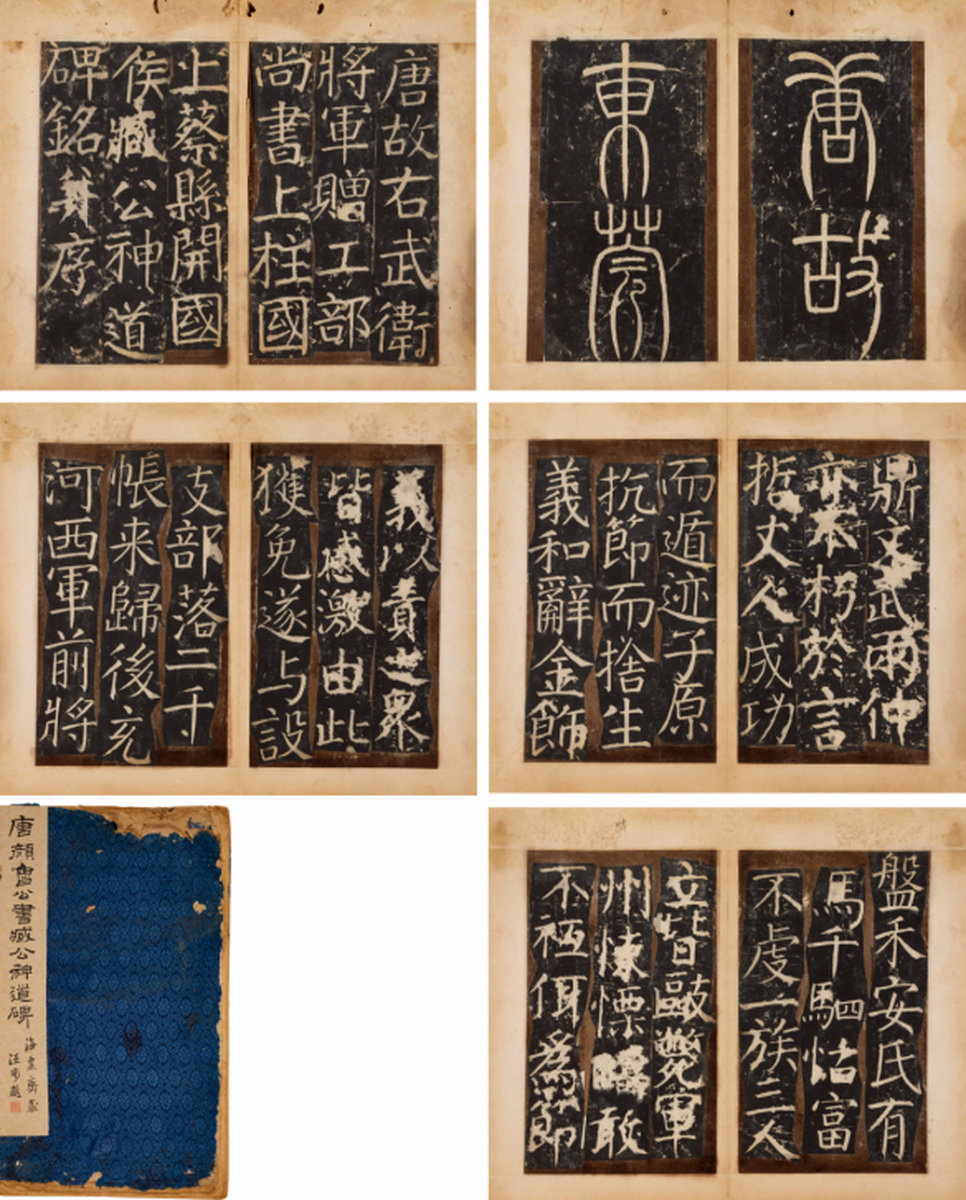 唐故
東莞
唐故右武衛
將軍贈工部
尚書上柱國
上蔡縣開國
侯臧公神道
碑銘并序
鼎文武兩仲
亦不朽於言
哲丈人成功
而遁迹子原
抗節而捨生
義和辭金飾
義以責之眾
皆感激由此
獲免遂与設
支部落二千
帳来歸後充
河西軍前將
盤禾安氏有
馬千駟怙富
不虔一族三人
立皆毆斃軍
州悚慄疇敢
不祗佴為節
唐顏魯公書臧公神道碑